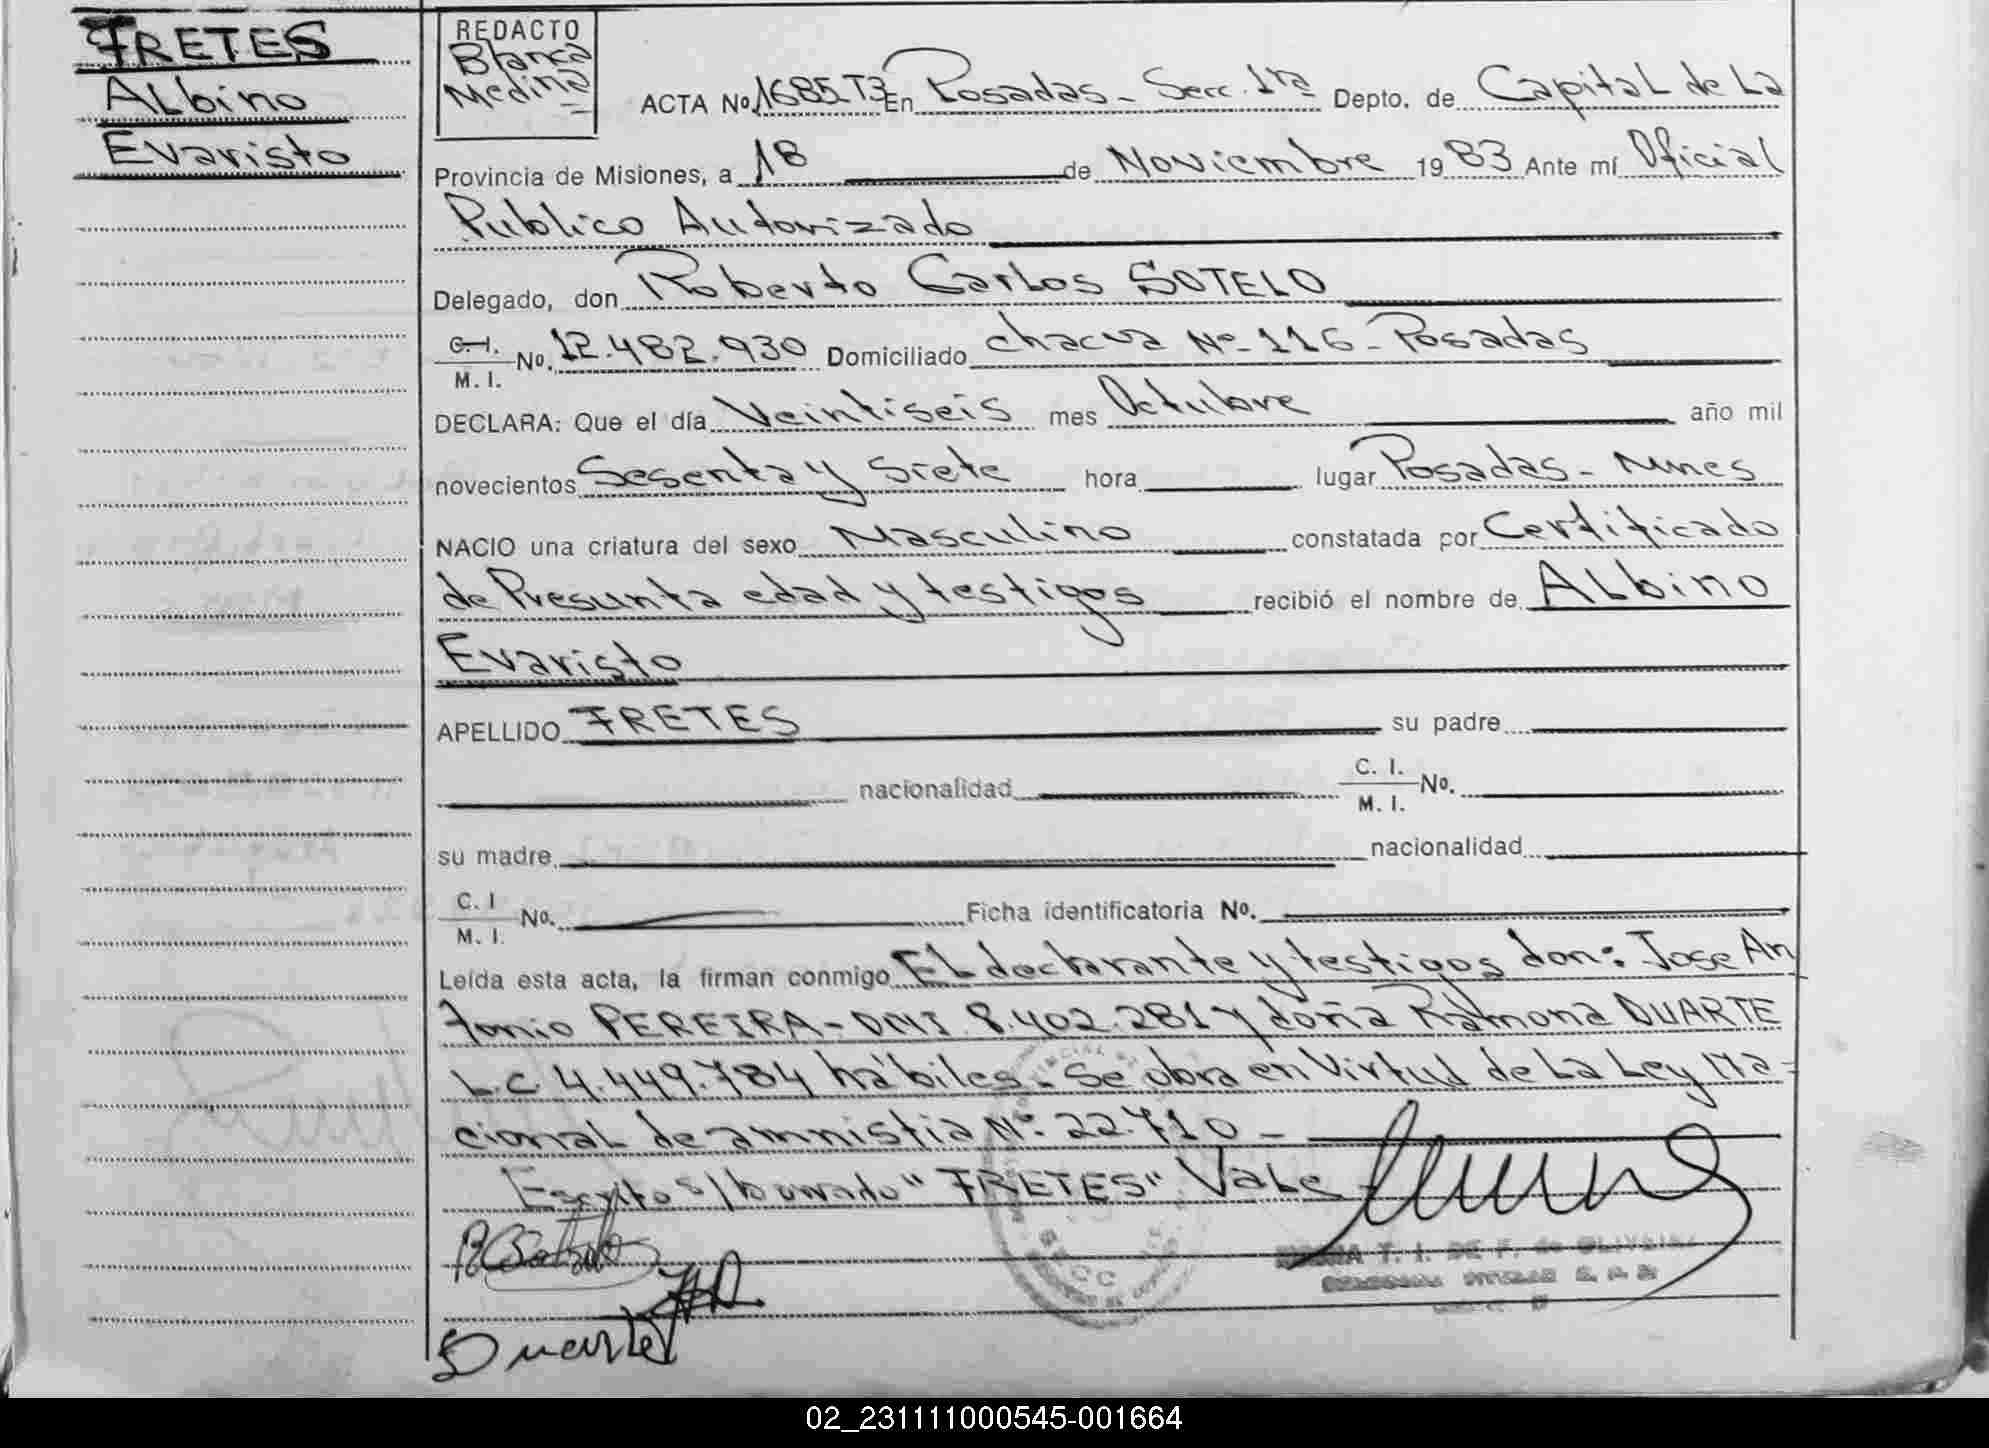 FRETES
Albino
Evaristo
REDACTO
Blanca
Medina
ACTA No. 1685-T3 En Posadas - Secc. 1ra Depto. de Capital de La
Provincia de Misiones, a 18 de Noviembre 1983 Ante mí Oficial
Publico Autorizado
Delegado, don Roberto Carlos SOTELO
C. I. M. I. No. 12.482.930 Domiciliado chacra Nº 116 - Posadas
DECLARA: Que el día Veintiseis mes Octubre año mil
novecientos Sesenta y Siete hora lugar Posadas - Mnes
NACIO una criatura del sexo Masculino constatada por Certificado
de Presunta edad y testigos recibió el nombre de Albino
Evaristo
APELLIDO FRETES su padre
nacionalidad C. I. M. I. No.
su madre nacionalidad
C. I M. I. No. Ficha identificatoria No.
Leída esta acta, la firman conmigo El declarante y testigos don: Jose An
tonio PEREIRA - DNI 8.402.281 y doña Ramona DUARTE
L.C 4.449.784 hábiles. Se obra en Virtud de La Ley Na-
cional de amnistia Nº 22.710 -
Escrito s/borrado "FRETES" Vale
T. I. DE F. de OLIVEIRA
Duarte
02_231111000545-001664